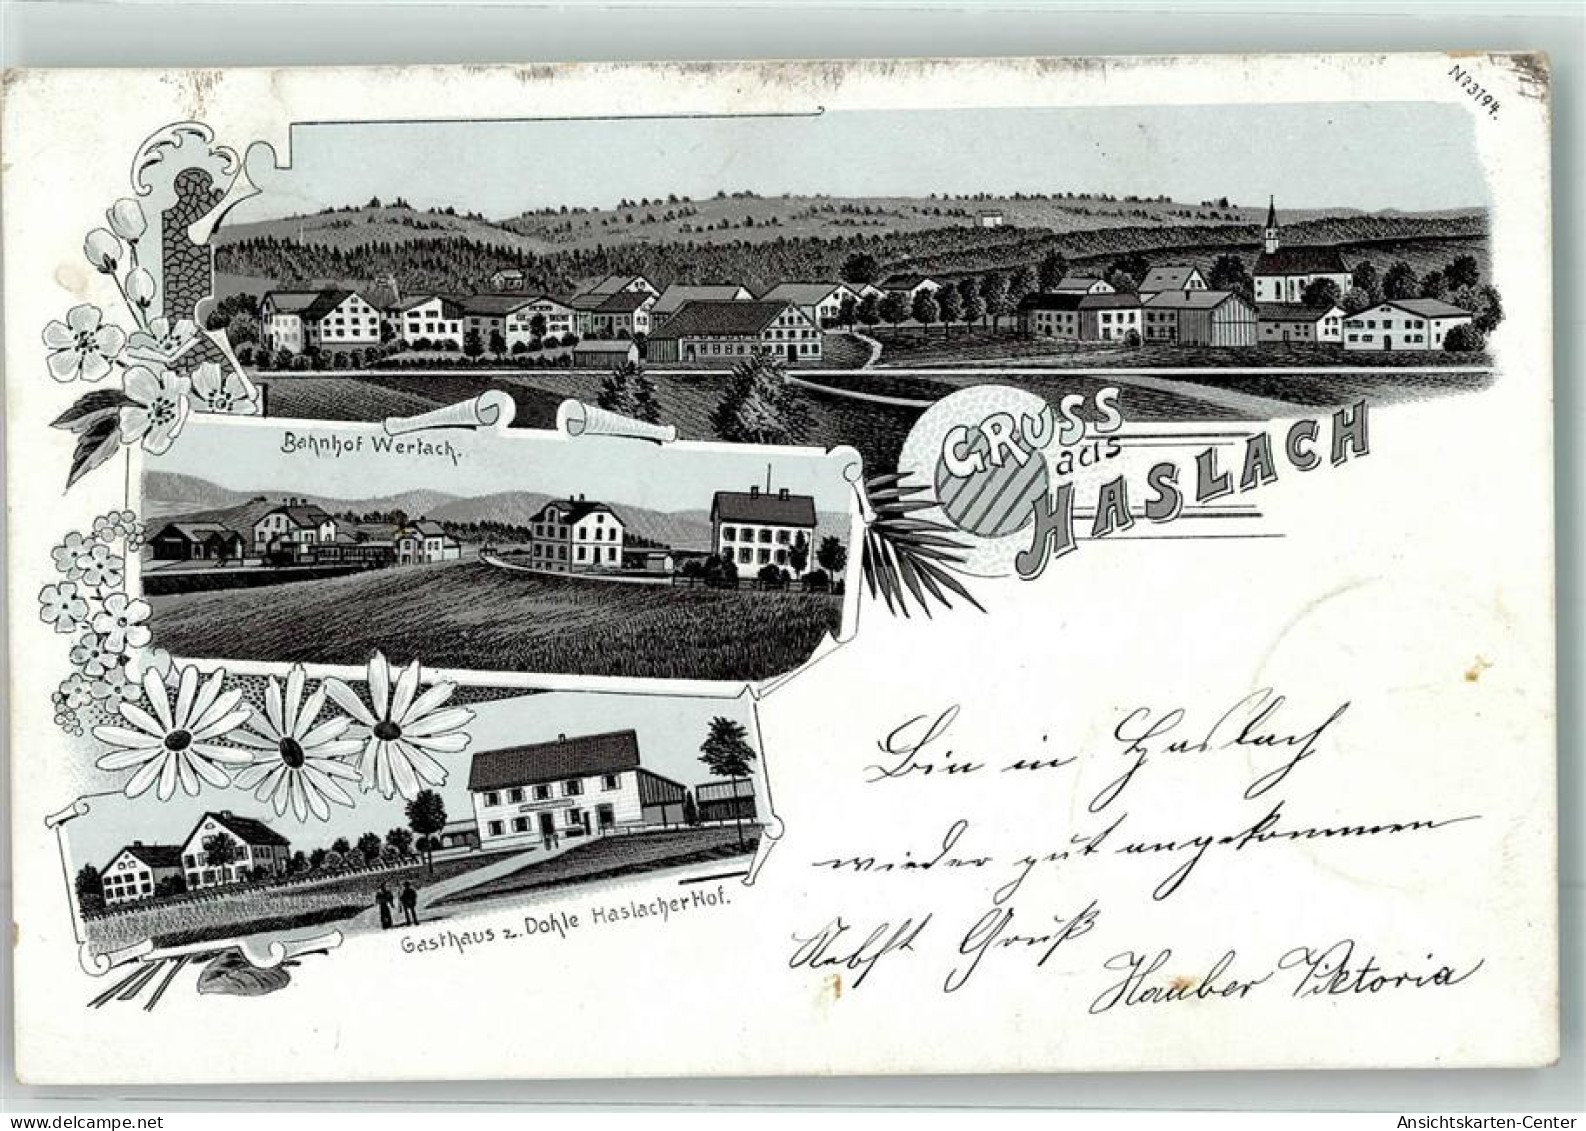 No 3194.
Bahnhof Wertach.
GRUSS
aus
HASLACH
Gasthaus z. Dohle Haslacher Hof.
Bin in Haslach
wieder gut angekommen
Nebst Gruß
Hauber Viktoria
delcampe.net
Ansichtskarten-Center